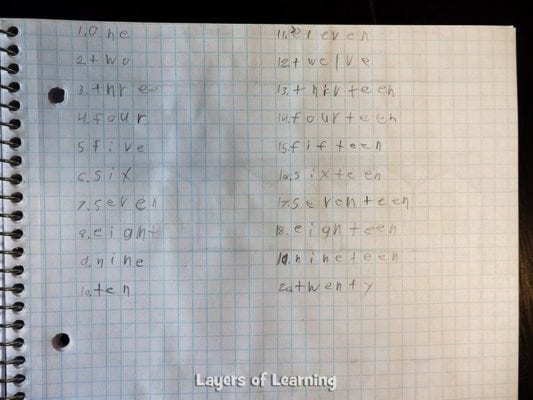 1. One
2. two
3. three
4. four
5. five
6. six
7. seven
8. eight
9. nine
10. ten
11. eleven
12. twelve
13. thirteen
14. fourteen
15. fifteen
16. sixteen
17. seventeen
18. eighteen
19. nineteen
20. twenty
Layers of Learning